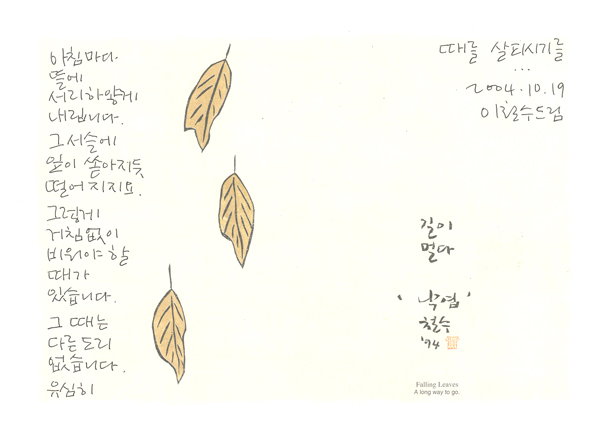 아침마다
뜰에
서리하얗게
내립니다.
그서슬에
잎이 쏟아지듯
떨어 지지요.
그렇게
거침없이
비워야 할
때가
있습니다.
그 때는
다른도리
없습니다.
유심히
때를 살피시기를
...
2004.10.19
이철수드림
길이
멀다
'낙엽'
철수
'94
Falling Leaves
A long way to go.